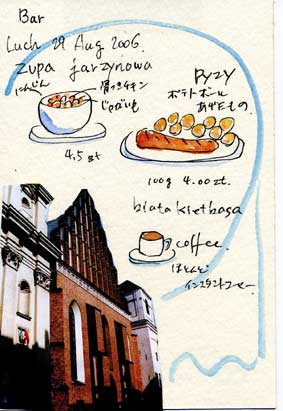 Bar
Luch 29 Aug 2006.
zupa jarzynowa
にんじん
骨つきチキン
じゃがいも
4.5 zt
pyzy
ポテトボール
あげたもの
100g 4.00 zt.
biata kietbasa
coffee.
ほとんど
インスタントコーヒー